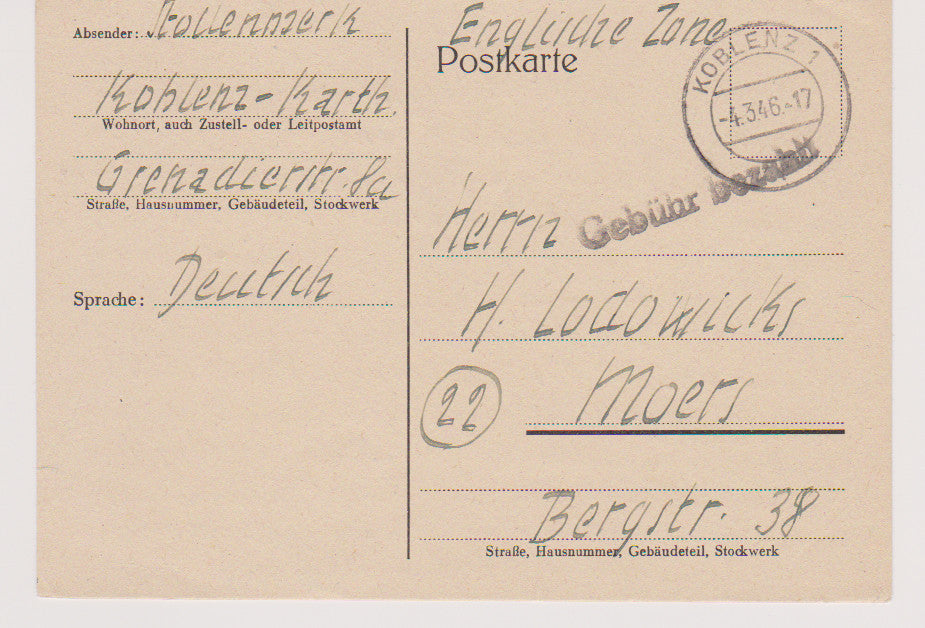 Absender: Stollenwerk
Koblenz-Karth.
Wohnort, auch Zustell- oder Leitpostamt
Grenadierstr. 8a
Straße, Hausnummer, Gebäudeteil, Stockwerk
Sprache: Deutsch
Englische Zone
Postkarte
KOBLENZ 1
-4.3.46.-17
Gebühr bezahlt
Herrn
H. Lodowicks
22 Moers
Bergstr. 38
Straße, Hausnummer, Gebäudeteil, Stockwerk